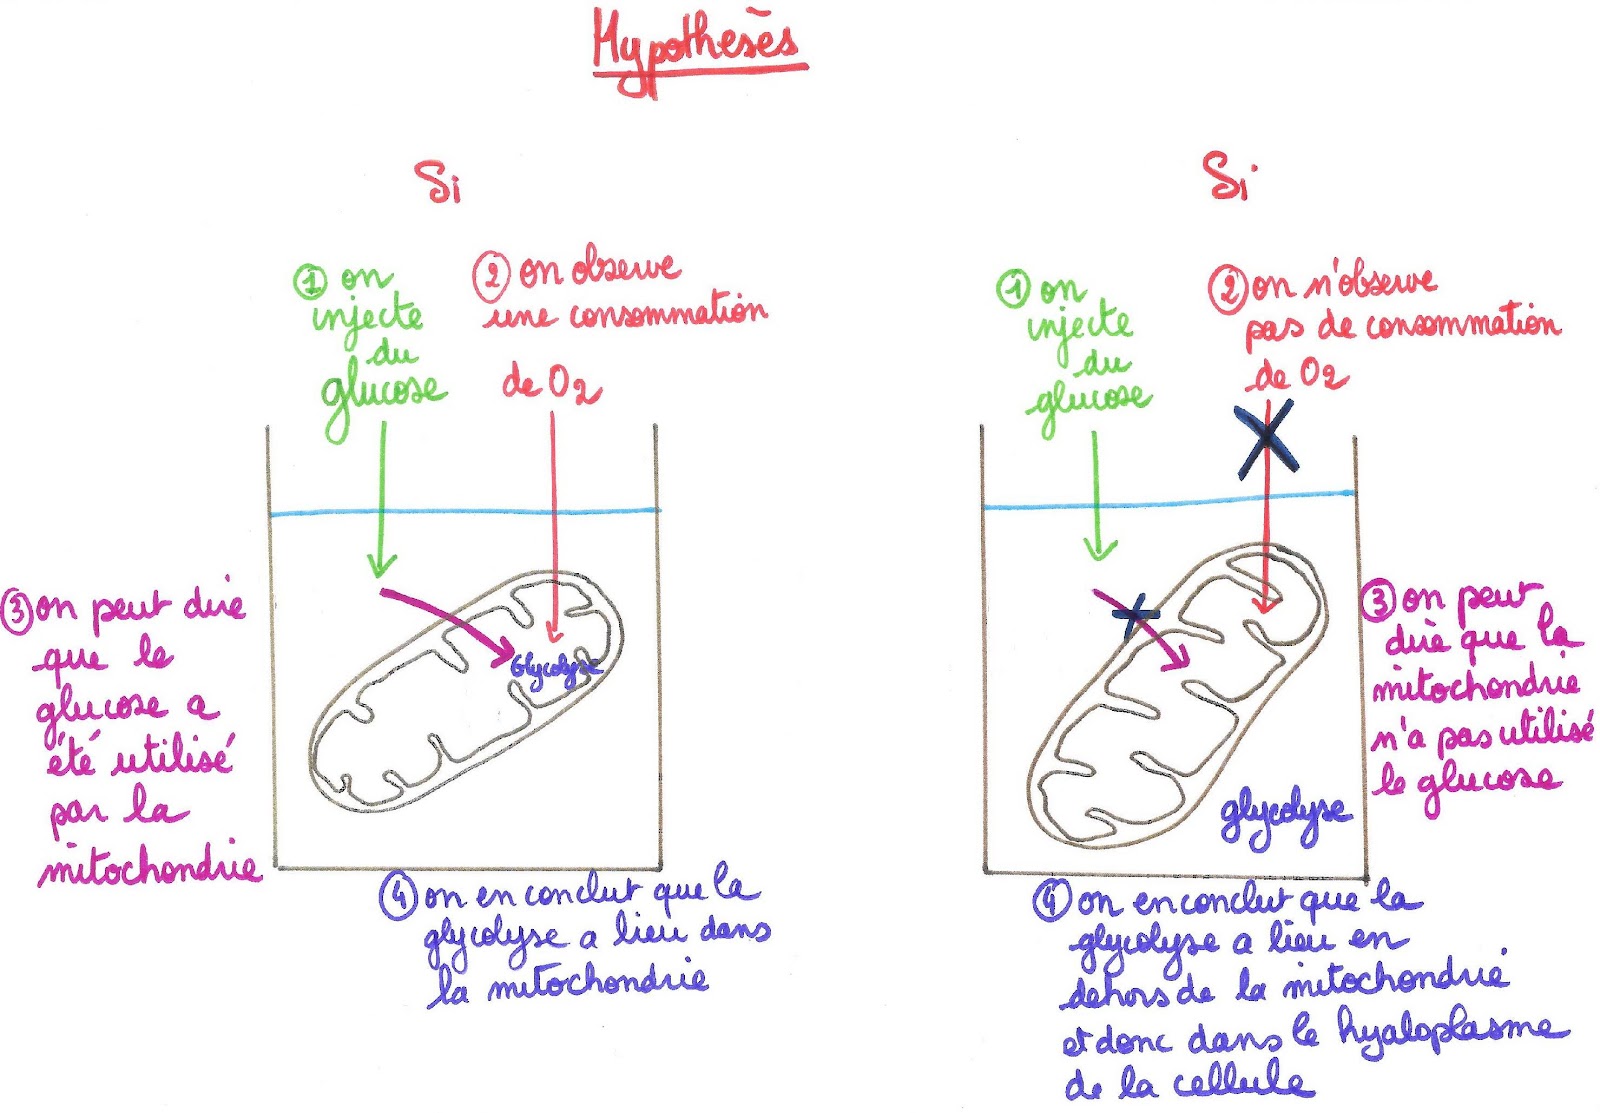 Hypothèses
Si
① on
injecte
du
glucose
② on observe
une consommation
de O2
③ on peut dire
que le
glucose a
été utilisé
par la
mitochondrie
Glycolyse
④ on en conclut que la
glycolyse a lieu dans
la mitochondrie
Si
① on
injecte
du
glucose
② on n'observe
pas de consommation
de O2
③ on peut
dire que la
mitochondrie
n'a pas utilisé
le glucose
glycolyse
④ on en conclut que la
glycolyse a lieu en
dehors de la mitochondrie
et donc dans le hyaloplasme
de la cellule